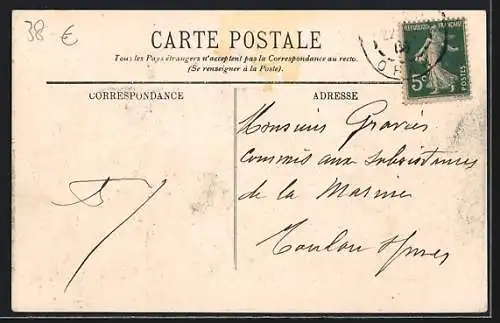 38-€
CARTE POSTALE
Tous les Pays étrangers n'acceptent pas la Correspondance au recto.
(Se renseigner à la Poste).
RÉPUBLIQUE FRANÇAISE
5c
POSTES
CORRESPONDANCE
ADRESSE
Monsieur Gravier
Commis aux Subsistances
de la Marine
Toulon